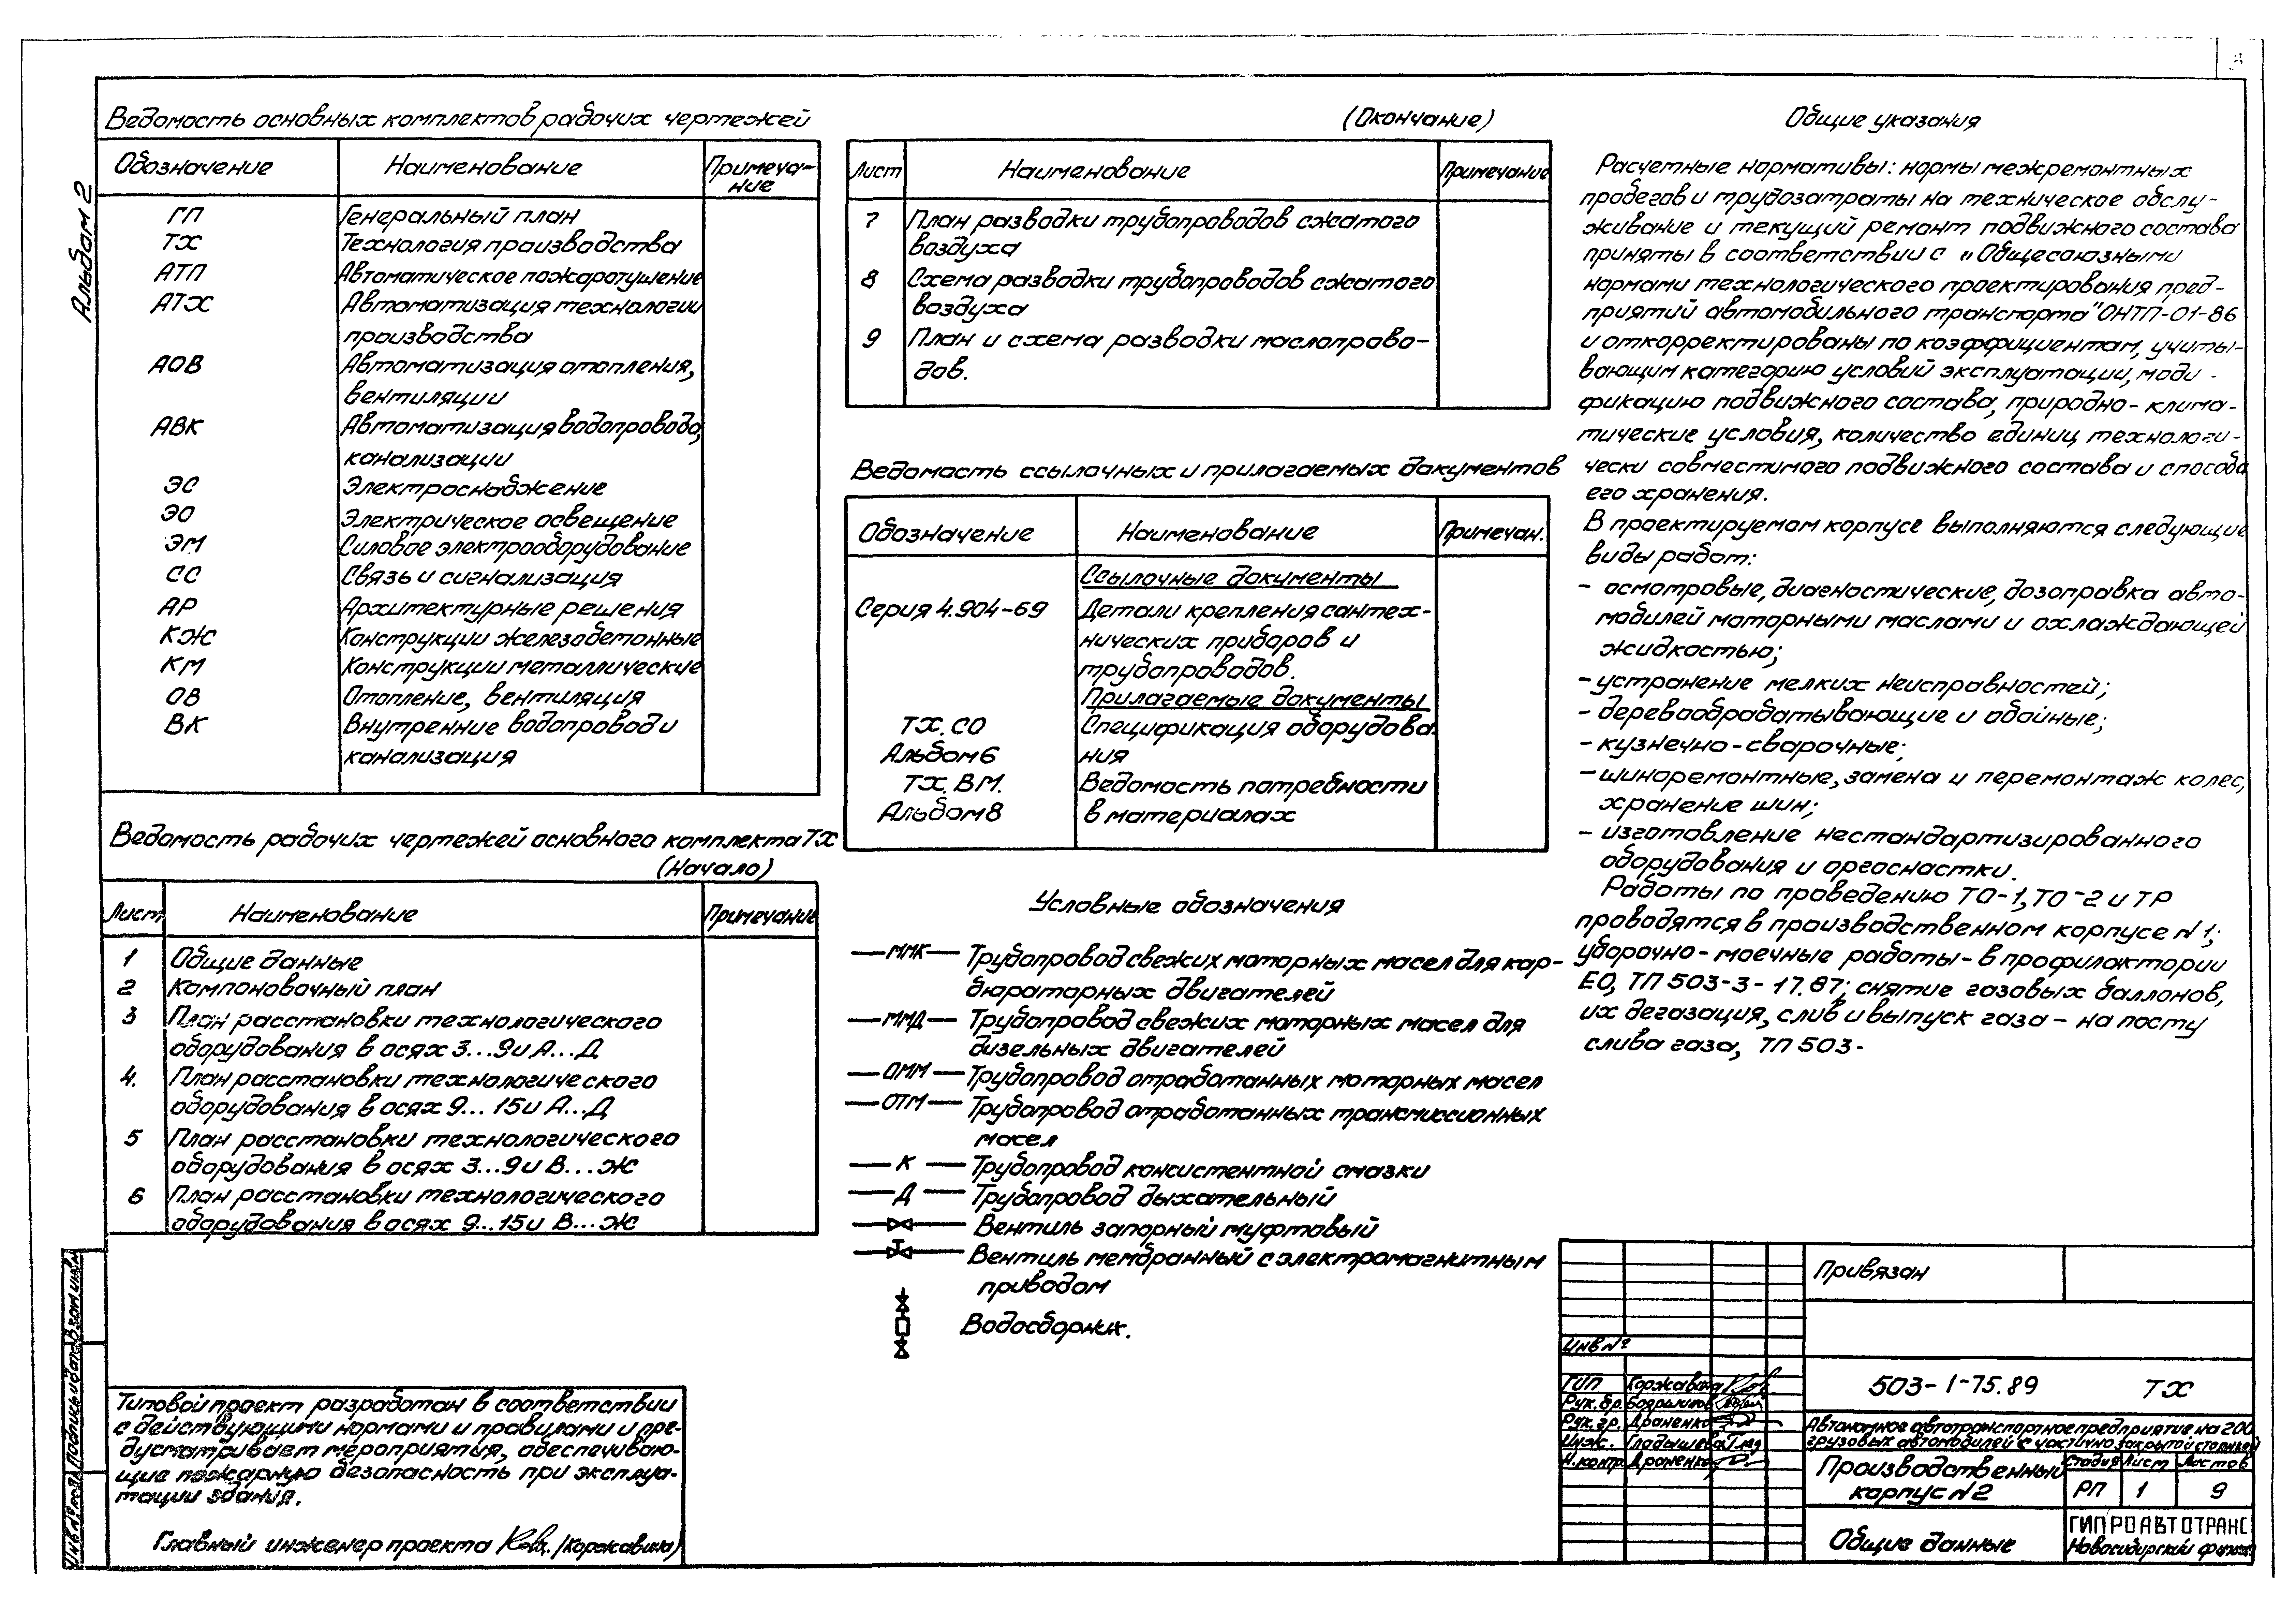 3
Альбом 2
Ведомость основных комплектов рабочих чертежей
Обозначение Наименование Примеча-
ние
ГП Генеральный план
ТХ Технология производства
АТП Автоматическое пожаротушение
АТХ Автоматизация технологии
производства
АОВ Автоматизация отопления,
вентиляции
АВК Автоматизация водопровода,
канализации
ЭС Электроснабжение
ЭО Электрическое освещение
ЭМ Силовое электрооборудование
СС Связь и сигнализация
АР Архитектурные решения
КЖ Конструкции железобетонные
КМ Конструкции металлические
ОВ Отопление, вентиляция
ВК Внутренние водопровод и
канализация
Ведомость рабочих чертежей основного комплекта ТХ
(Начало)
Лист Наименование Примечание
1 Общие данные
2 Компоновочный план
3 План расстановки технологического
оборудования в осях 3...9 и А...Д
4. План расстановки технологического
оборудования в осях 9...15 и А...Д
5 План расстановки технологического
оборудования в осях 3...9 и В...Ж
6 План расстановки технологического
оборудования в осях 9...15 и В...Ж
Типовой проект разработан в соответствии
с действующими нормами и правилами и пре-
дусматривает мероприятия, обеспечиваю-
щие пожарную безопасность при эксплуа-
тации здания.
Главный инженер проекта /Коржавина/
(Окончание)
Лист Наименование Примечание
7 План разводки трубопроводов сжатого
воздуха
8 Схема разводки трубопроводов сжатого
воздуха
9 План и схема разводки маслопрово-
дов.
Ведомость ссылочных и прилагаемых документов
Обозначение Наименование Примечан.
Ссылочные документы
Серия 4.904-69 Детали крепления сантех-
нических приборов и
трубопроводов.
Прилагаемые документы
ТХ.СО Спецификация оборудова-
Альбом 6 ния
ТХ.ВМ. Ведомость потребности
Альбом 8 в материалах
Условные обозначения
—ММК— Трубопровод свежих моторных масел для кар-
бюраторных двигателей
—ММД— Трубопровод свежих моторных масел для
дизельных двигателей
—ОММ— Трубопровод отработанных моторных масел
—ОТМ— Трубопровод отработанных трансмиссионных
масел
—К— Трубопровод консистентной смазки
—Д— Трубопровод дыхательный
Вентиль запорный муфтовый
Вентиль мембранный с электромагнитным
приводом
Водосборник.
Общие указания
Расчетные нормативы: нормы межремонтных
пробегов и трудозатраты на техническое обслу-
живание и текущий ремонт подвижного состава
приняты в соответствии с „Общесоюзными
нормами технологического проектирования пред-
приятий автомобильного транспорта" ОНТП-01-86
и откорректированы по коэффициентам, учиты-
вающим категорию условий эксплуатации, моди-
фикацию подвижного состава, природно-клима-
тические условия, количество единиц технологи-
чески совместимого подвижного состава и способа
его хранения.
В проектируемом корпусе выполняются следующие
виды работ:
- осмотровые, диагностические, дозаправка авто-
мобилей моторными маслами и охлаждающей
жидкостью;
- устранение мелких неисправностей;
- деревообрабатывающие и обойные;
- кузнечно-сварочные;
- шиноремонтные, замена и перемонтаж колес,
хранение шин;
- изготовление нестандартизированного
оборудования и оргоснастки.
Работы по проведению ТО-1, ТО-2 и ТР
проводятся в производственном корпусе N1;
уборочно-моечные работы-в профилактории
ЕО, ТП 503-3-17.87; снятие газовых баллонов,
их дегазация, слив и выпуск газа - на посту
слива газа, ТП 503-
Привязан
Инв №
ГИП Коржавина
Рук. бр.
Рук. гр. Драненко
Инж. Гладышева
Н.контр. Драненко
503-1-75.89 ТХ
Автономное автотранспортное предприятие на 200
грузовых автомобилей с частично закрытой стоянкой
Производственный
корпус N2
Стадия Лист Листов
РП 1 9
Общие данные
ГИПРОАВТОТРАНС
Новосибирский филиал
Инв № подл. Подпись и дата Взам инв №